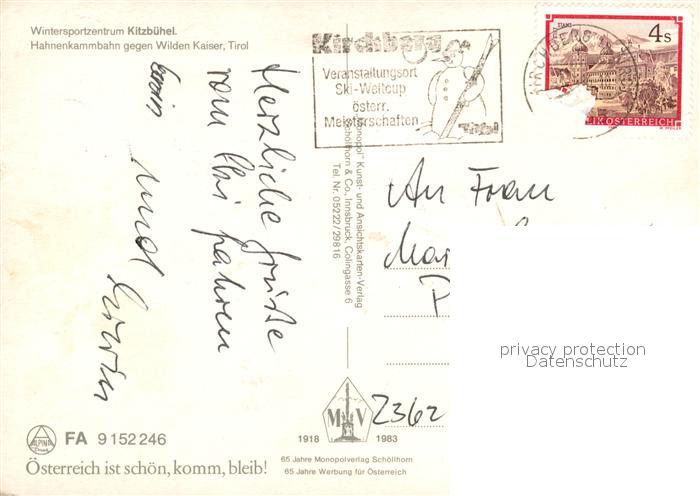 Wintersportzentrum Kitzbühel.
Hahnenkammbahn gegen Wilden Kaiser, Tirol
Kirchberg
Veranstaltungsort
Ski-Weltcup
österr.
Meisterschaften
Tirol
STAMS
4 s
REPUBLIK ÖSTERREICH
KIRCHBERG
Herzliche Grüße
vom Ski fahren
und Erwin
"Monopol" Kunst- und Ansichtskarten-Verlag
Schöllhorn & Co., Innsbruck, Colingasse 6
Tel. Nr. 05222/29816
An Frau
Mar
P
2362
privacy protection
Datenschutz
ALPINA
FA 9 152 246
Österreich ist schön, komm, bleib!
MV
1918 1983
65 Jahre Monopolverlag Schöllhorn
65 Jahre Werbung für Österreich